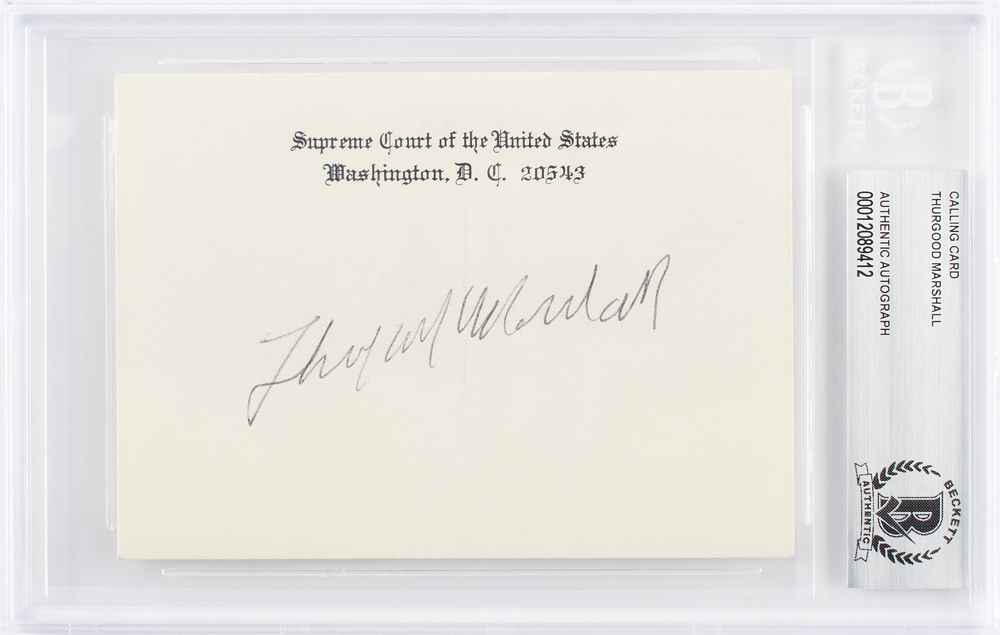 Supreme Court of the United States
Washington, D. C. 20543
Thurgood Marshall
BECKETT
CALLING CARD
THURGOOD MARSHALL
AUTHENTIC AUTOGRAPH
00012089412
BECKETT
AUTHENTIC